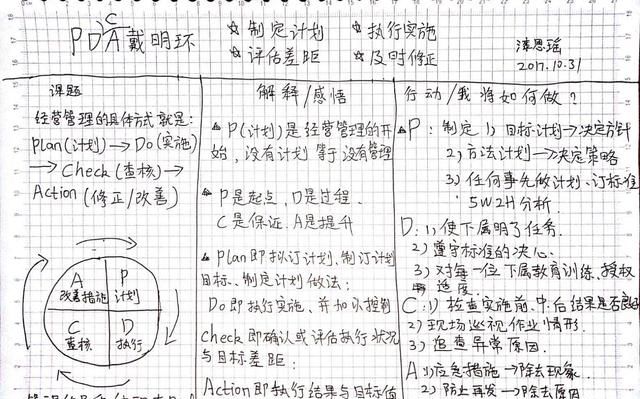 PDCA戴明环
☆ 制定计划 ☆ 执行实施
☆ 评估差距 ☆ 及时修正
漆思瑶
2017.10.31
课题
经营管理的具体方式就是:
plan(计划)→Do(实施)
→Check(查核)→
Action(修正/改善)
A 改善措施
P 计划
C 查核
D 执行
解释/感悟
P(计划)是经营管理的开
始,没有计划等于没有管理
P是起点,D是过程.
C是保证.A是提升
plan即拟订计划、制订计划
目标、制定计划做法;
Do即执行实施、并加以控制
check即确认或评估执行状况
与目标差距;
Action即执行结果与目标值
行动/我将如何做?
P:制定 1)目标计划→决定方针
2)方法计划→决定策略
3)任何事先做计划、订标准
5W2H分析.
D:1)使下属明了任务.
2)遵守标准的决心.
3)对每一位下属教育训练、授权
适度.
C:1)检查实施前、中、后结果是否良好
2)现场巡视作业情形.
3)追查异常原因.
A 1)应急措施→除去现象.
2)防止再发→除去原因